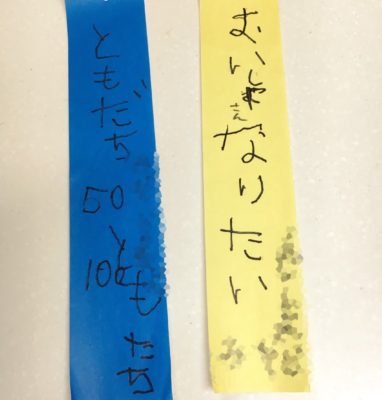 おいしゃさんになりたい
ともだち50
100ともだち